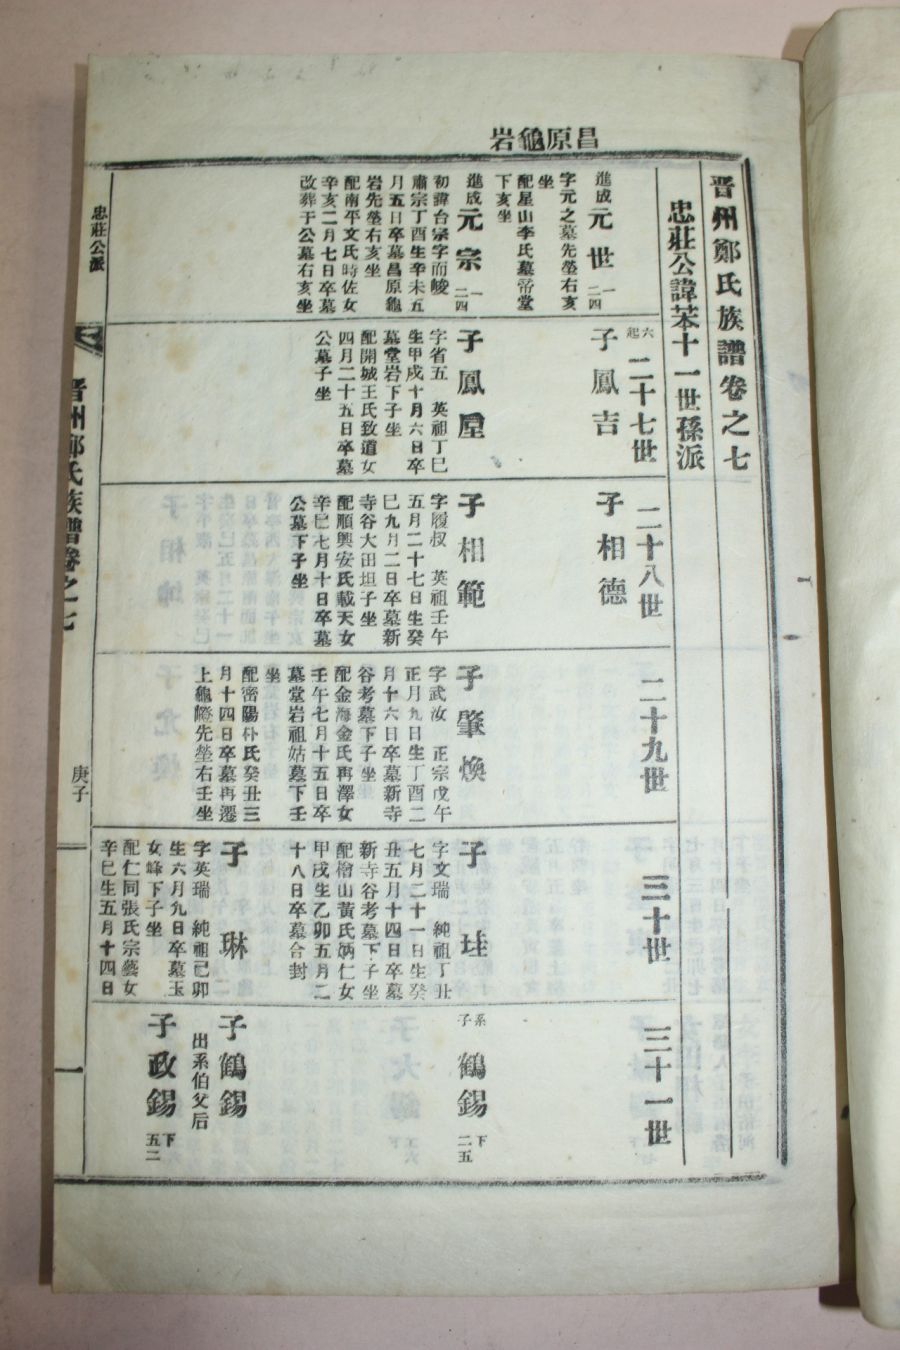 昌原龜岩
晋州鄭氏族譜卷之七
忠莊公諱苯十一世孫派
進成 元世 一二四
字元之墓先塋右亥
坐
配星山李氏墓帝堂
下亥坐
進成 元宗 一二四
初諱台宗字而峻
肅宗丁酉生辛未五
月五日卒墓昌原龜
岩先塋右亥坐
配南平文氏時佐女
辛亥二月七日卒墓
改葬于公墓右亥坐
六起 二十七世
子鳳吉
子鳳屋
字省五 英祖丁巳
生甲戌十月六日卒
墓堂岩下子坐
配開城王氏致道女
四月二十五日卒墓
公墓子坐
二十八世
子相德
子相範
字履叔 英祖壬午
五月二十七日生癸
巳九月二日卒墓新
寺谷大田坦子坐
配順興安氏載天女
辛巳七月十日卒墓
公墓下子坐
二十九世
子肇煥
字武汝 正宗戊午
正月九日生丁酉二
月十六日卒墓新寺
谷考墓下子坐
配金海金氏再澤女
壬午七月十五日卒
墓堂岩祖姑墓下壬
坐
配密陽朴氏癸丑三
月十四日卒墓再遷
上龜 先塋右壬坐
三十世
子珪
字文瑞 純祖丁丑
七月二十一日生癸
丑五月十四日卒墓
新寺谷考墓下子坐
配檜山黃氏炳仁女
甲戌生乙卯五月二
十八日卒墓合封
子琳
字英瑞 純祖己卯
生六月九日卒墓玉
女峰下子坐
配仁同張氏宗藝女
辛巳生五月十四日
三十一世
系子 鶴錫 下二五
子鶴錫
出系伯父后
子政錫 下五二
忠莊公派
晋州鄭氏族譜卷之七
庚子
一